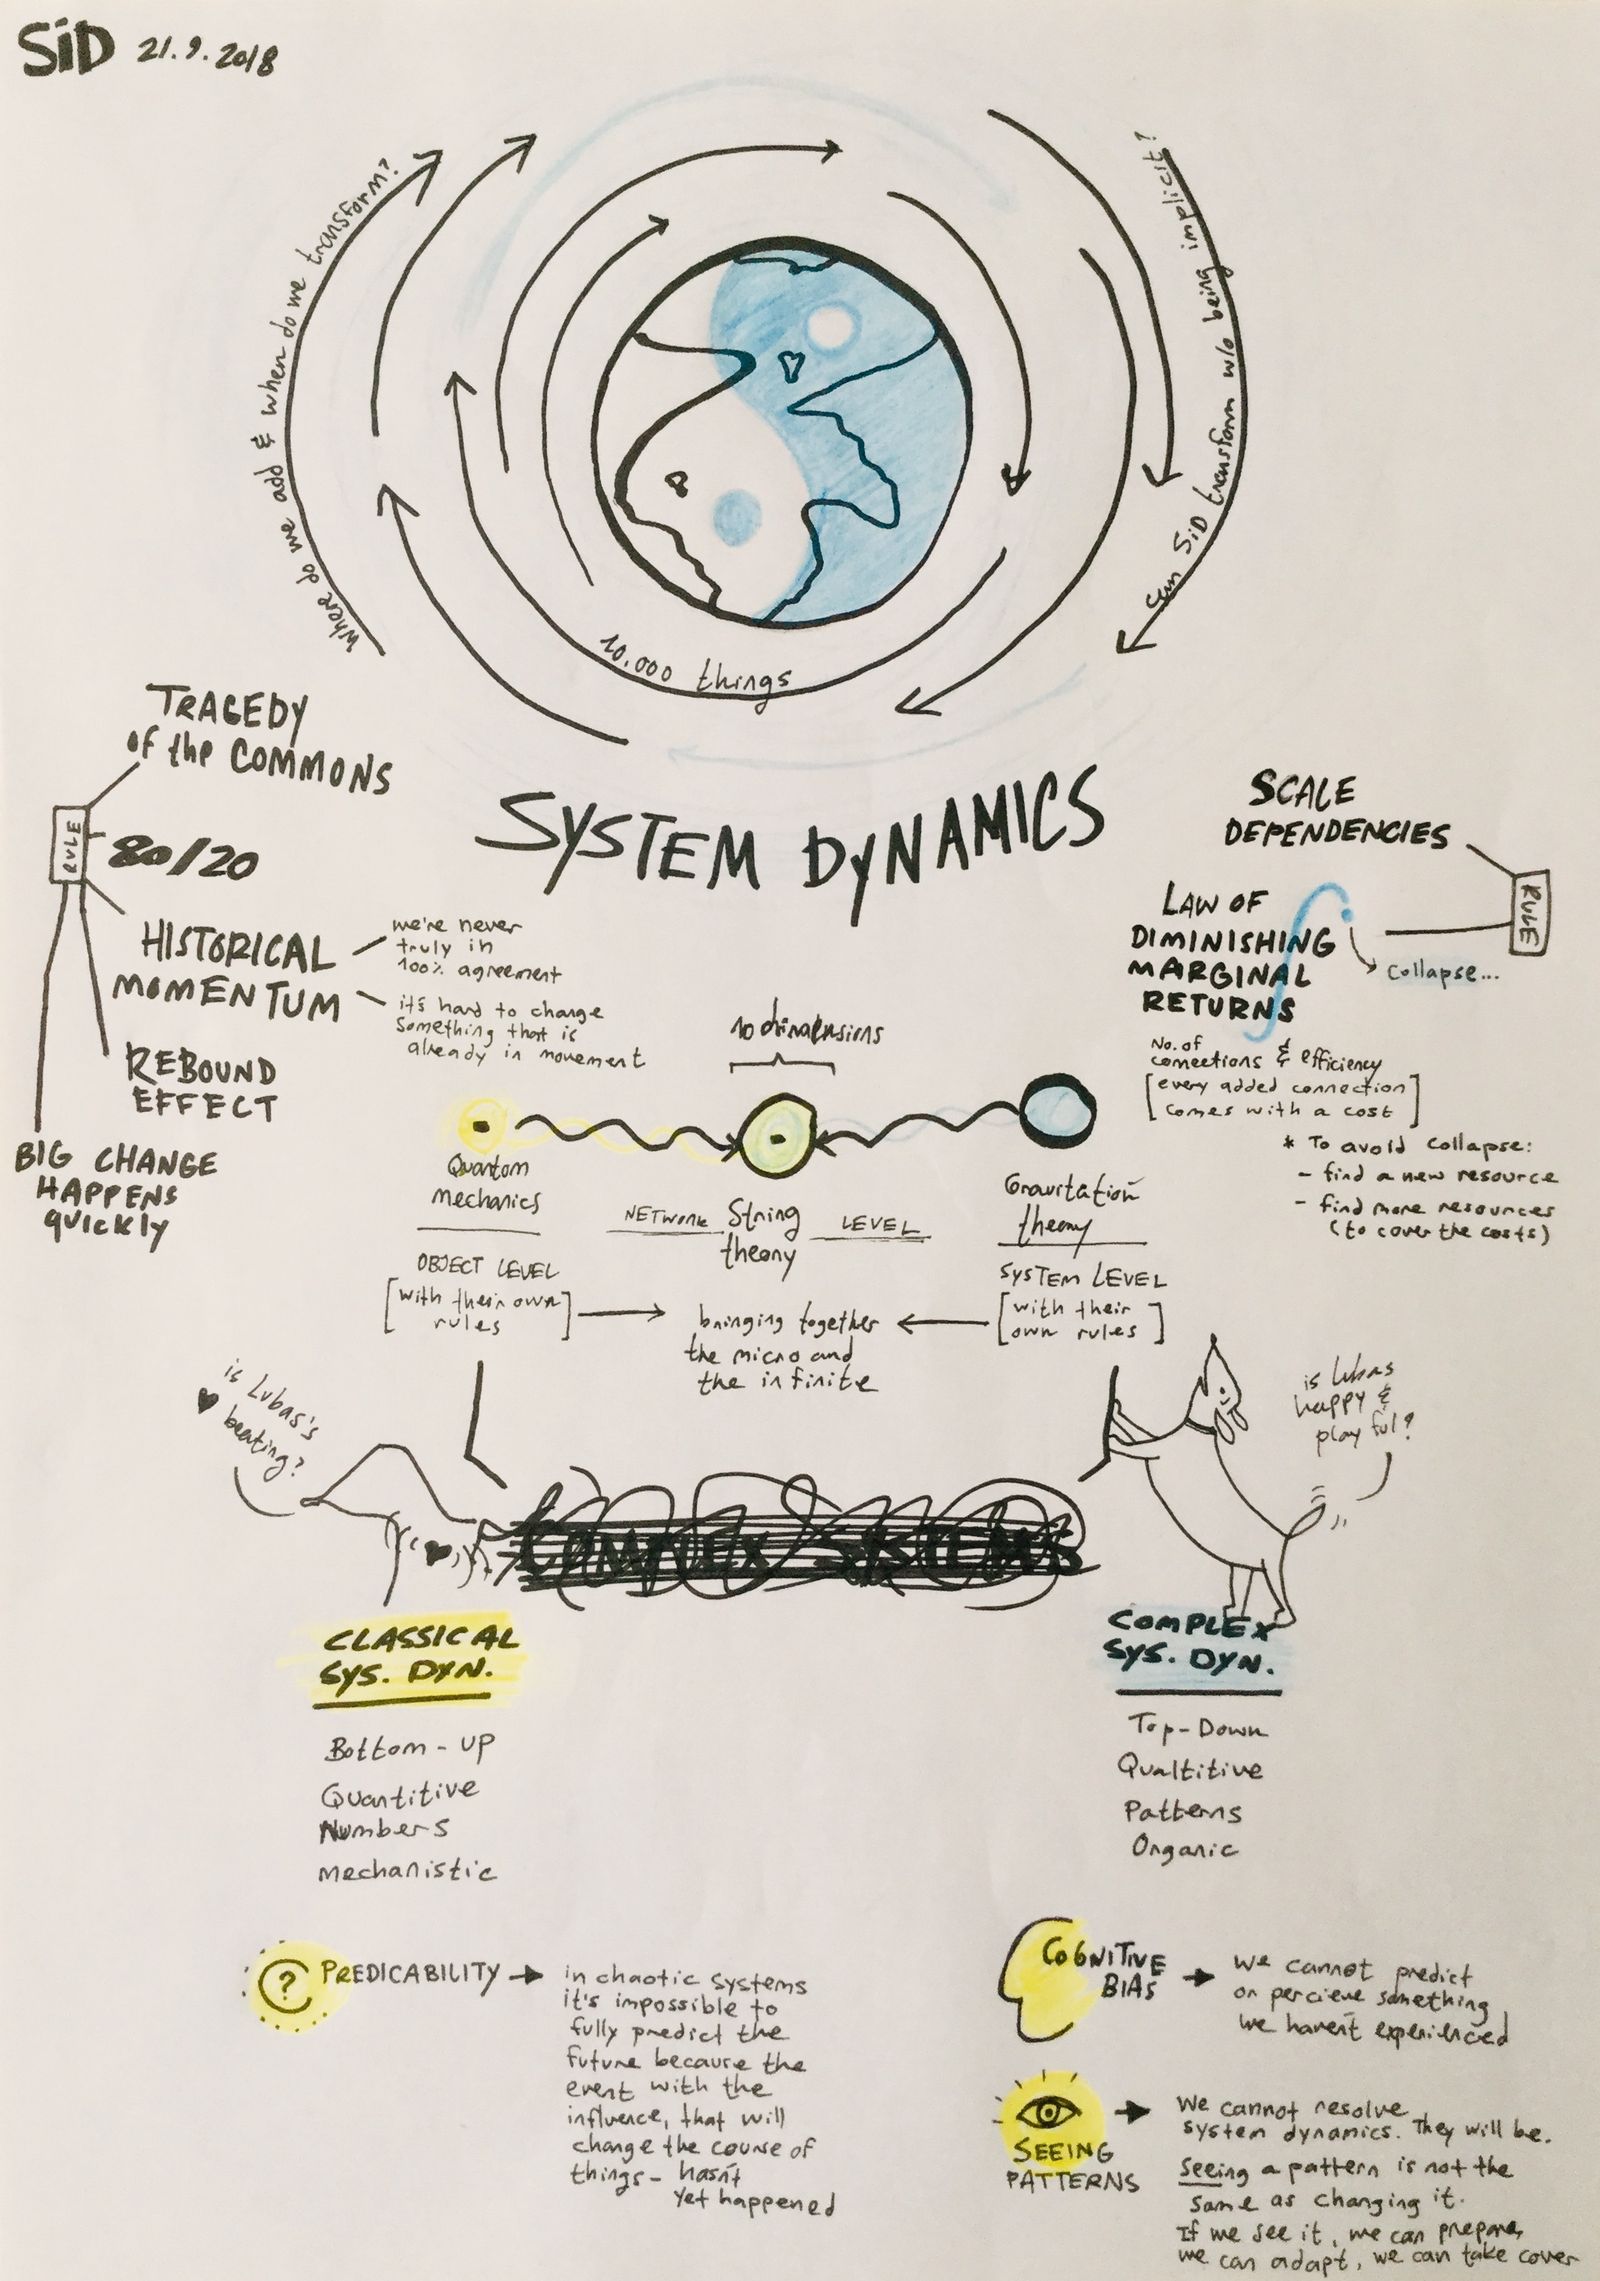 SiD 21.9.2018
Where do we add & when do we transform?
Can SiD transform w/o being implicit?
10.000 things
SYSTEM DYNAMICS
TRAGEDY
of the COMMONS
RULE
80/20
HISTORICAL
MOMENTUM
we're never
truly in
100% agreement
it's hard to change
something that is
already in movement
REBOUND
EFFECT
BIG CHANGE
HAPPENS
quickly
SCALE
DEPENDENCIES
RULE
LAW OF
DIMINISHING
MARGINAL
RETURNS
collapse...
No. of
connections & efficiency
[every added connection
comes with a cost]
* To avoid collapse:
- find a new resource
- find more resources
(to cover the costs)
10 dimensions
Quantom
mechanics
NETWORK String LEVEL
theory
Gravitation
theory
OBJECT LEVEL
[with their own
rules]
bringing together
the micro and
the infinite
SYSTEM LEVEL
[with their
own rules]
is Lubas's
♥ beating?
is lubas
happy &
playful?
COMPLEX SYSTEMS
CLASSICAL
SYS. DYN.
Bottom-up
Quantitive
Numbers
mechanistic
COMPLEX
SYS. DYN.
Top-Down
Qualtitive
Patterns
Organic
? PREDICABILITY →
in chaotic systems
it's impossible to
fully predict the
future because the
event with the
influence, that will
change the course of
things - hasn't
yet happened
COGNITIVE
BIAS →
we cannot predict
or percieve something
we haven't experienced
SEEING
PATTERNS
We cannot resolve
system dynamics. They will be.
Seeing a pattern is not the
same as changing it.
If we see it, we can prepare,
we can adapt, we can take cover